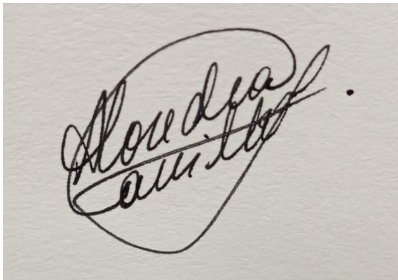 Alondra
Camila